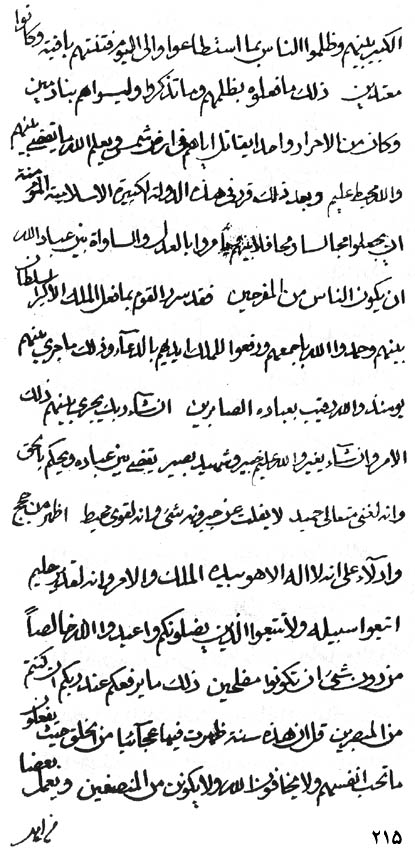 الكبير بينهم وظلموا الناس بما استطاعوا والى اليوم فتنتهم باقية وكانوا
معتدين ذلك ما فعلوه بظلمهم وما تذكروا وليسواهم بنادمين
وكان من الاحرار واحدا يقاتل اياهم في ارض شمس ويعلم الله ما يقضي بينهم
والله محيط عليم وبعد ذلك قرر في هذه الدولة الكبيرة الاسلامية المؤمنة
ان يجعلوا مجالسا ومحافلا بينهم يأمروا بالعدل والمساواة بين عباد الله
ان يكون الناس من المفرحين فقد سر القوم بما فعل الملك الاكبر السلطان
بينهم وحمدوا الله باجمعهم ورفعوا للملك ايديهم بالدعآء وذلك ما جرى بينهم
يومئذ والله رقيب بعباده الصابرين ان شاء ربك يجرى بينهم ذلك
الامر وان شآء يغير والله عليم خبير وشهيد بصير يقضي بين عباده ويحكم بالحق
وانه لغني متعالي حميد لا يفلت عن جبروته شئ وانه لقوى محيط اظهر من حجج
وادلآء على انه لا اله الا هو بيده الملك والامر وانه لقادر حليم
اتبعوا سبيله ولا تتبعوا الذين يضلونكم واعبدوا الله خالصاً
من دون شئ ان تكونوا مفلحين ذلك ما يرفعكم عند ربكم ان كنتم
من المبصرين قل ان هذه سنة ظهرت فيها عجآئبا من الخلق حيث يفعلون
ما تحب انفسهم ولا يخافون الله ولا يكونن من المنصفين ويعمل بعضا
٢١٥